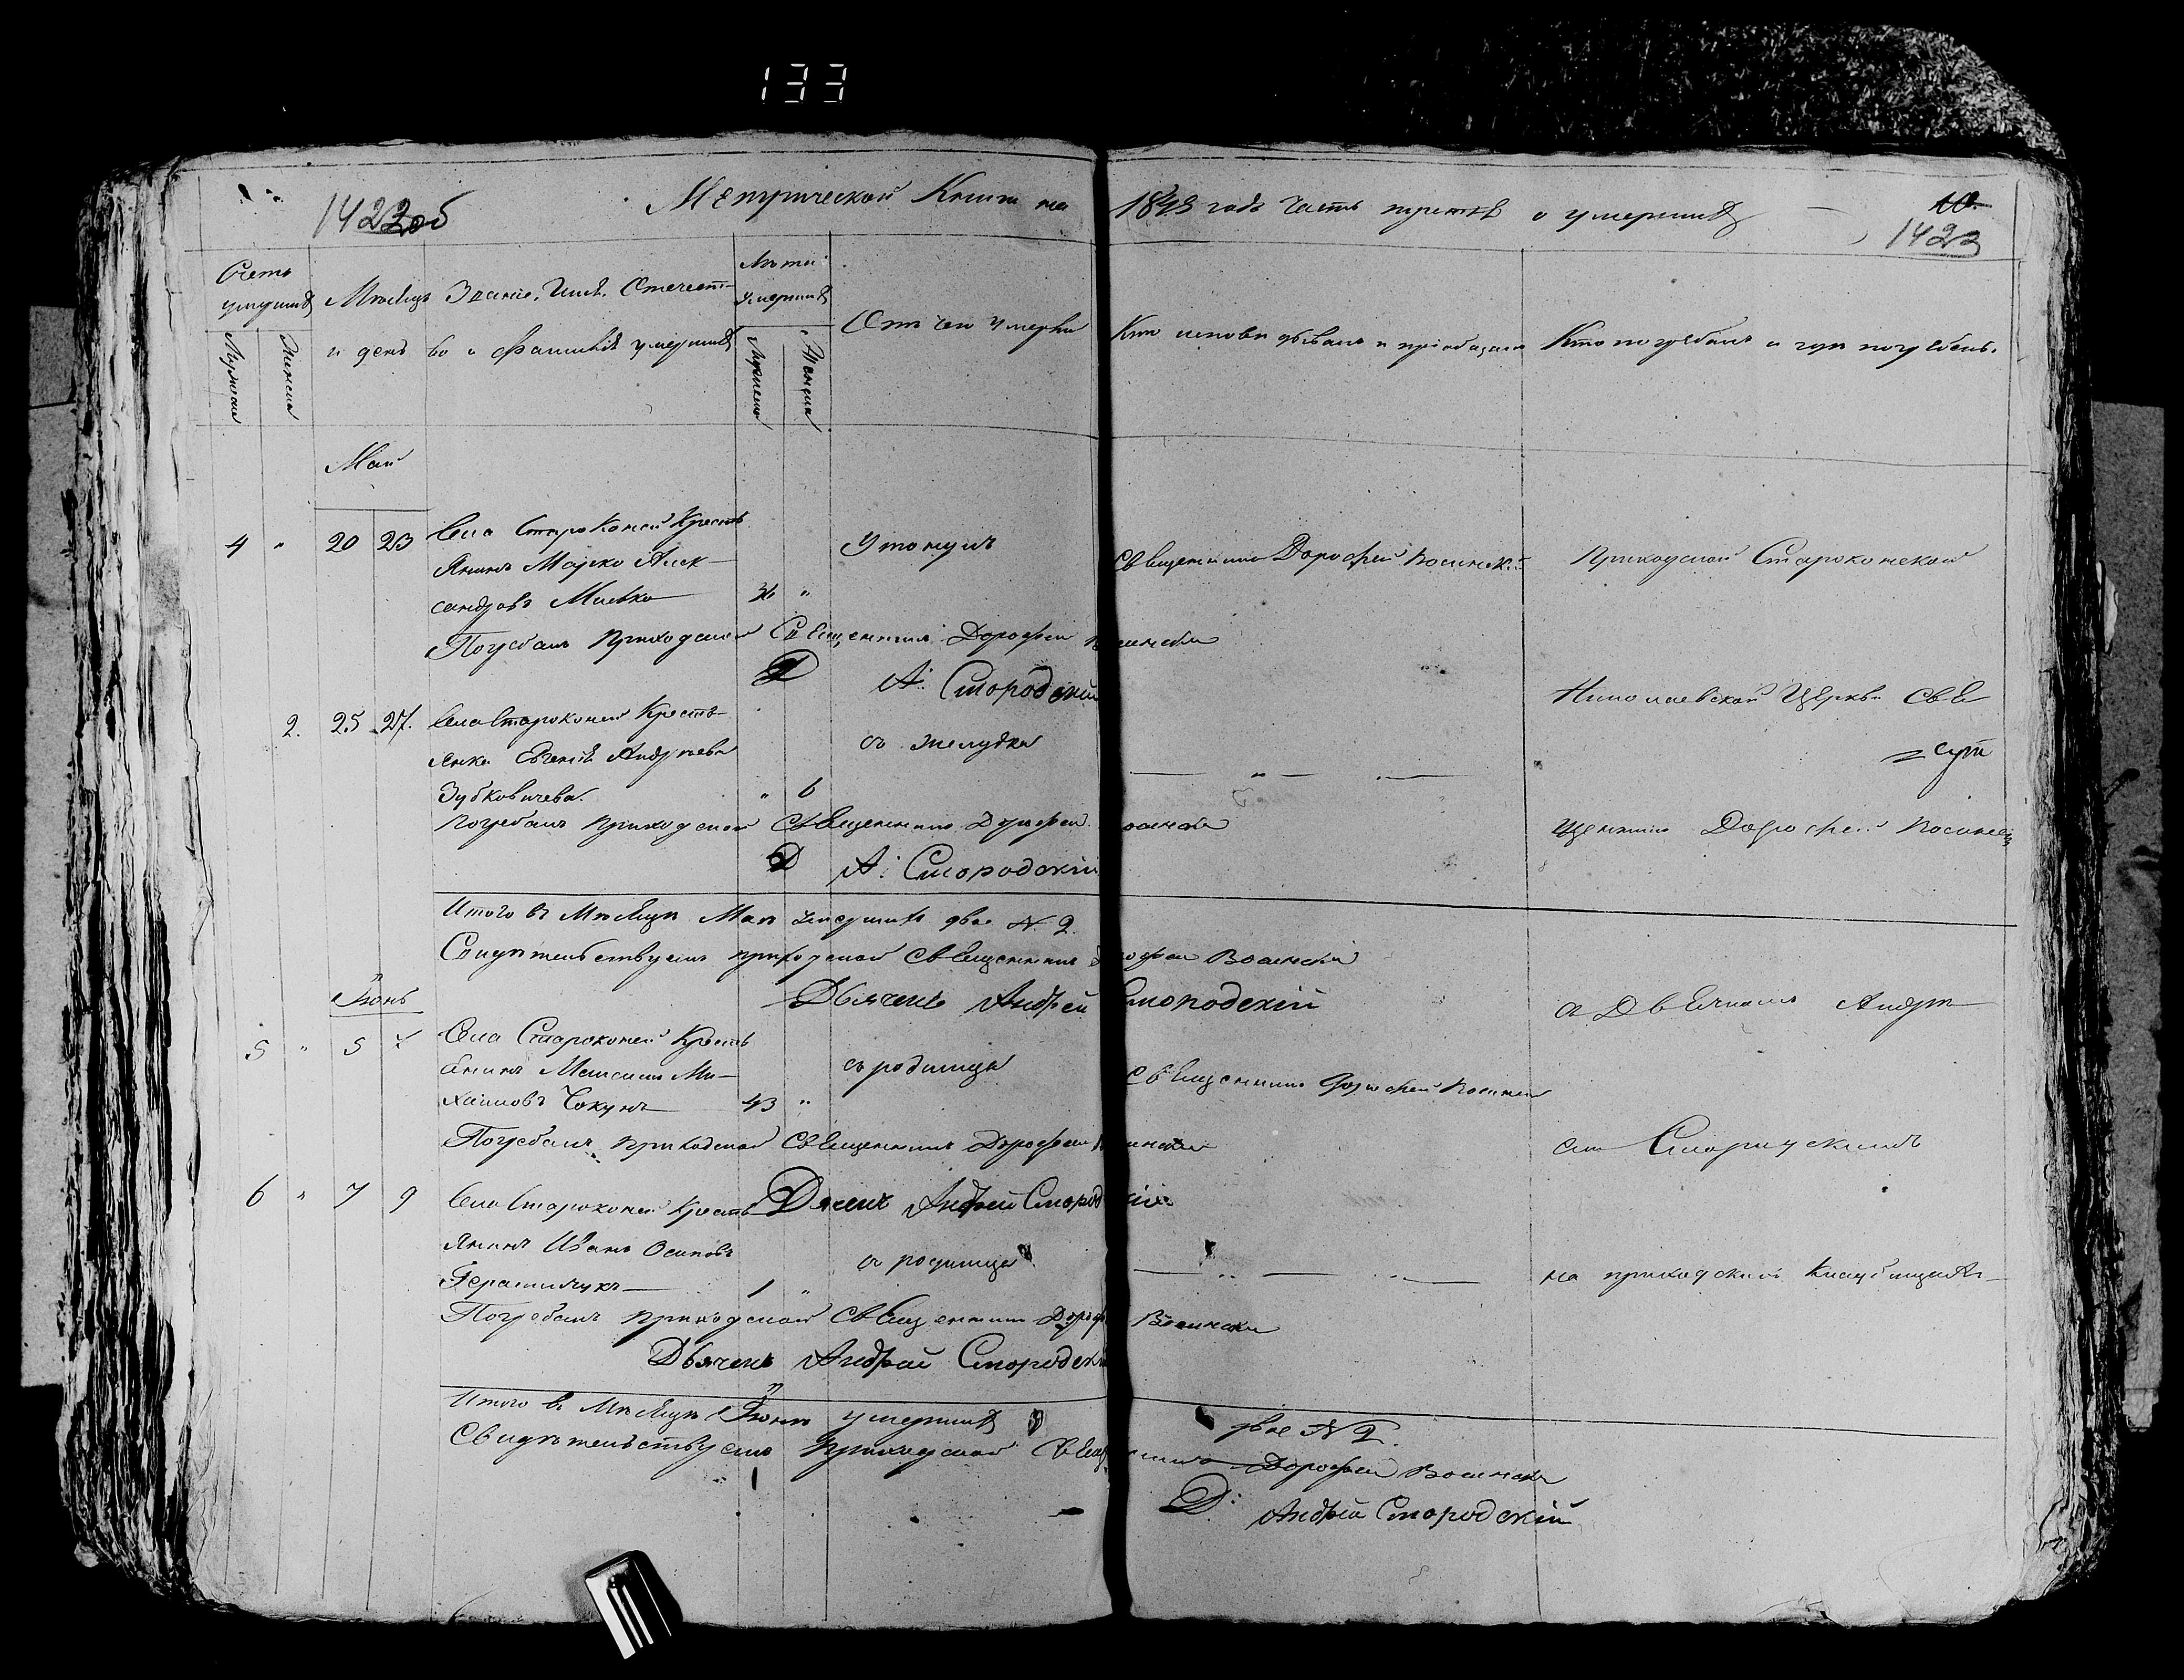 133
1422об
Метрической Книги на 1843 годъ Часть третья о умершихъ
10
1423
Счетъ умершихъ
Мужеска
Женска
Мѣсяцъ и день
Званіе, Имя, Отечество и Фамилія умершихъ
Лѣта умершихъ
Мужеска
Женска
Отъ чего умерли
Кто исповѣдывалъ и пріобщалъ
Кто погребалъ и гдѣ погребенъ.
Май
4 " 20 23 Села Староконей Кресть
янинъ Марко Алек
сандровъ Милько "
Утонулъ
Священникъ Дорофей
Приходской Староконской
Погребалъ Приходской Священникъ Дорофей
Д А: Смородскій
Николаевской Церкви Свя
2. 25 27. Села Староконей Кресть
янка Евгенія Андреева
Зубковичева. " 6
съ желудка
щенникъ Дорофей
Погребалъ Приходской Священникъ Дорофей
Д А: Смородскій
Итого въ Мѣсяцѣ Маѣ умершихъ двое № 2.
Свидѣтельствуемъ приходской Священникъ Дорофей
Дьячекъ Андрей Смородскій
съ Дьячкомъ Андре
Іюнь
5 " 5 7 Села Староконей Кресть
янинъ Максимъ Ми
хаиловъ Чокунъ 43 "
съ родимца
Священникъ Дорофей
емъ Смородскимъ
Погребалъ приходской Священникъ Дорофей
Дьячекъ Андрей Смородскій
6 " 7 9 Села Староконей Кресть
янинъ Иванъ Осиповъ
Герасимчукъ 1 "
съ родимца
на приходскомъ Кладбищѣ
Погребалъ приходской Священникъ Дороф
Дьячекъ Андрей Смородскій
Итого въ Мѣсяцѣ Іюнѣ умершихъ двое № 2.
Свидѣтельствуемъ приходской Священникъ Дорофей
Д: Андрей Смородскій